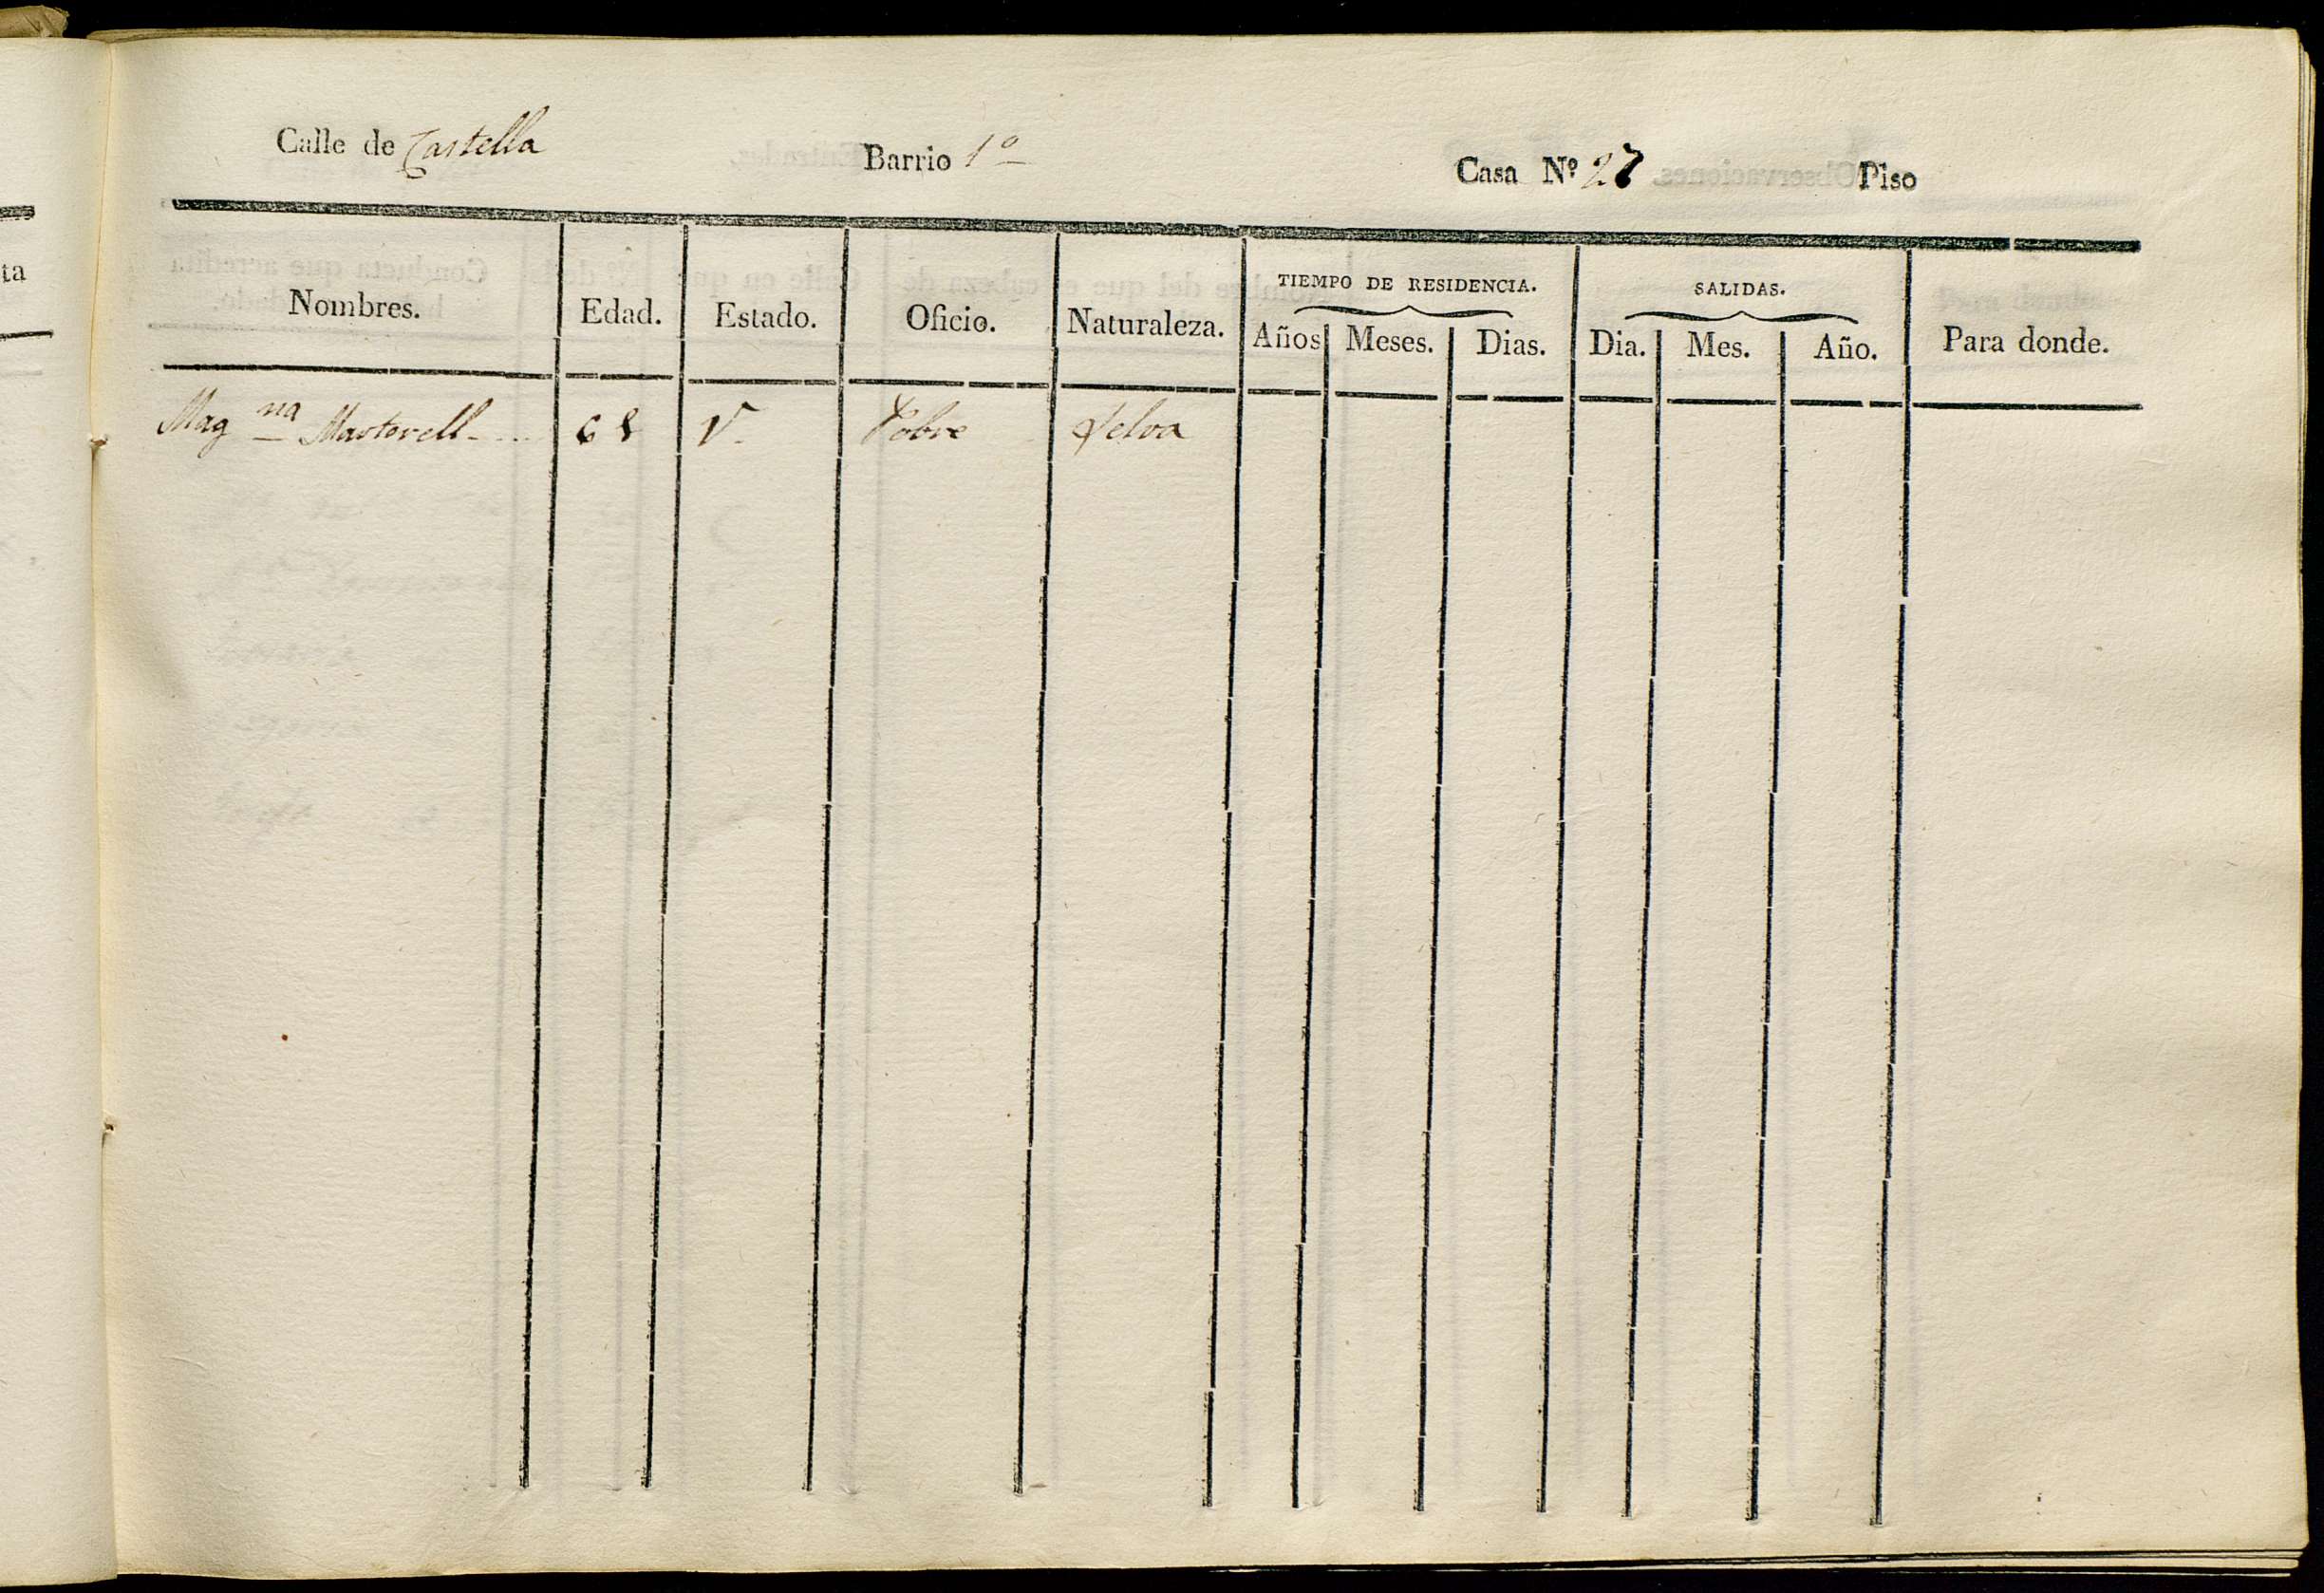 Calle de Castella Barrio 1º Casa Nº 27 Piso
ta
Nombres. Edad. Estado. Oficio. Naturaleza. TIEMPO DE RESIDENCIA. SALIDAS. Para donde.
Años Meses. Dias. Dia. Mes. Año.
Mag.na Martorell 68 V. Pobre Selva